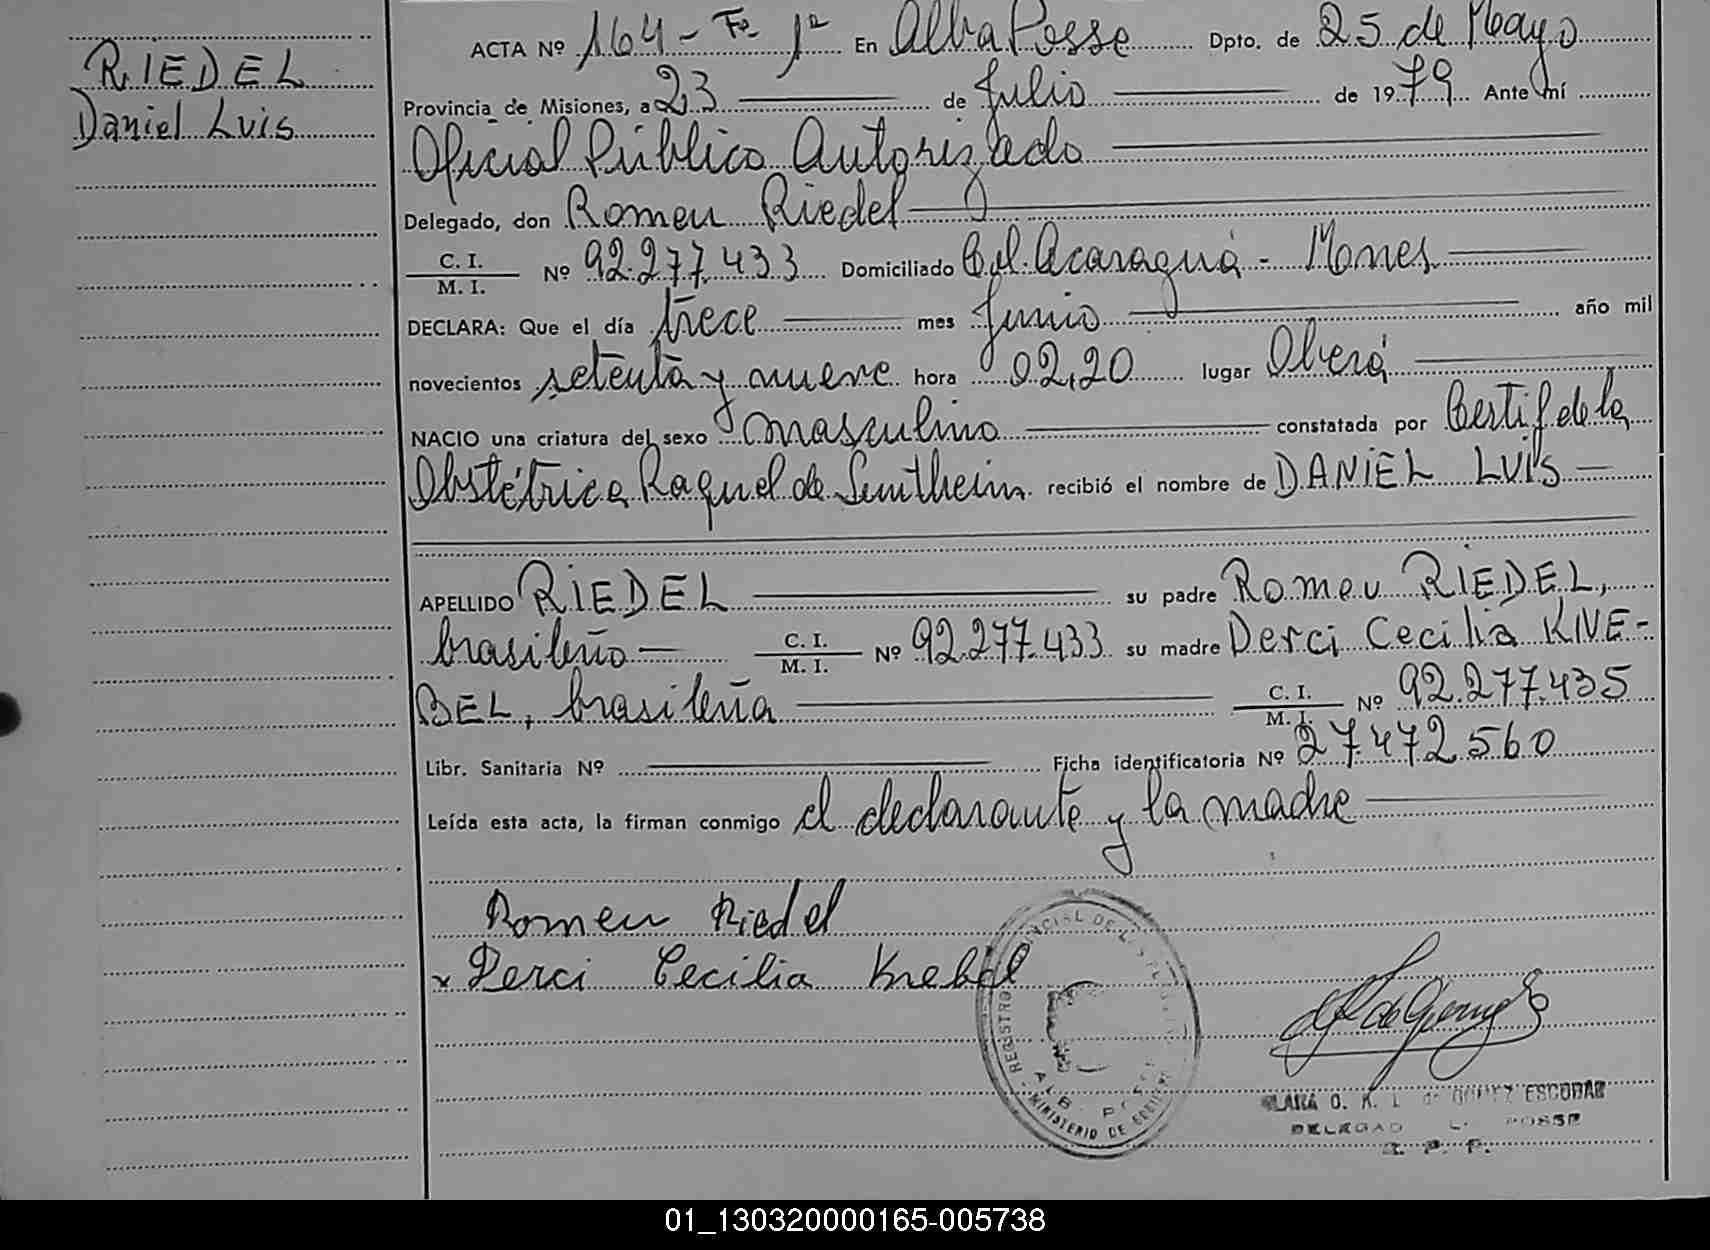 RIEDEL
Daniel Luis
ACTA Nº 164 - Fº 1ª En Alba Posse Dpto. de 25 de Mayo
Provincia de Misiones, a 23 de Julio de 1979 Ante mí
Oficial Público Autorizado
Delegado, don Romeu Riedel
C. I.
M. I. Nº 92.277.433 Domiciliado Col. Acaraguá - Mnes
DECLARA: Que el día trece mes Junio año mil
novecientos setenta y nueve hora 02,20 lugar Oberá
NACIO una criatura del sexo masculino constatada por Certif de la
Obstétrica Raquel de recibió el nombre de DANIEL LUIS
APELLIDO RIEDEL su padre Romeu RIEDEL,
brasileño C. I. M. I. Nº 92.277.433 su madre Derci Cecilia KNE-
BEL, brasileña C. I. M. I. Nº 92.277.435
Libr. Sanitaria Nº Ficha identificatoria Nº 27.472.560
Leída esta acta, la firman conmigo el declarante y la madre
Romeu Riedel
x Derci Cecilia Knebel
REGISTRO DE
MINISTERIO DE
O. K. ESCOBAR
POSSE
01_130320000165-005738